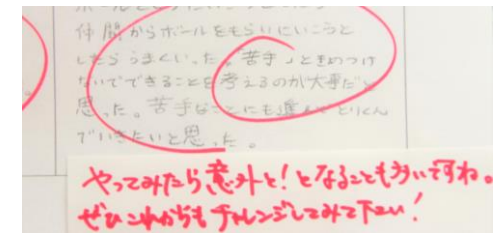 ボールをもらいにいこうと
仲間からボールをもらいにいこうと
したらうまくいった。「苦手」ときめつけ
ないでできることを考えるのが大事だと
思った。苦手なことにも進んでとりくん
でいきたいと思った。
やってみたら意外と!となることも多いですね。
ぜひこれからもチャレンジしてみて下さい!